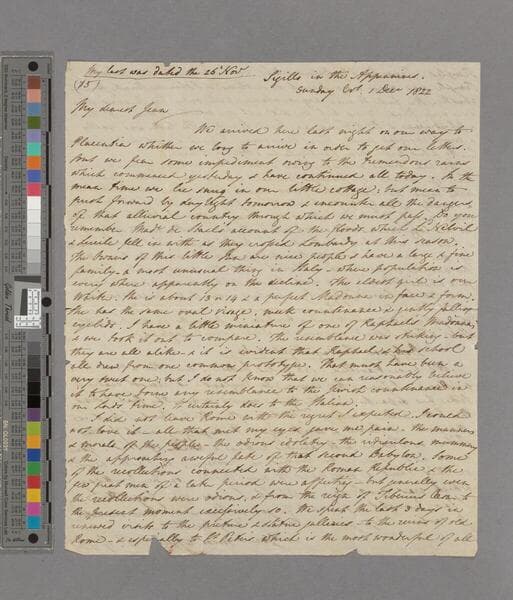 My last was dated the 26 Nov
(15)
Sigillo in the Appenines.
Sunday Evt. 1 Decr 1822
My dearest Jean
We arrived here last night on our way to
Placentia whither we long to arrive in order to get our letters.
But we fear some impediment owing to the tremendous rains
which commenced yesterday & have continued all today. In the
mean time we lie snug in our little cottage; but mean to
push forward by daylight tomorrow & encounter all the dangers
of that alluvial country through which we must pass. Do you
remember Made de Staels account of the floods which Ld Nelvil
& Lucile fell in with as they crossed Lombardy at this season.
The owners of this little Inn are nice people & have a large & fine
family - a most unusual thing in Italy - where population is
every where apparently on the decline. The eldest girl is our
She is about 13 or 14 & a perfect Madonna in face & form.
She has the same oval visage, meek countenance & gently falling
eyelids. I have a little miniature of one of Raphaels Madonnas,
& we took it out to compare. The resemblance was striking - but
they are all alike - & it is evident that Raphael & his school
all drew from one common prototype. That must have been a
very sweet one; but I do not know that we can reasonably believe
it to have borne any resemblance to the Jewish countenance in
our Lords time. It certainly does to the Italian.
I did not leave Rome with the regret I expected. I could
not love it - all that met my eyes gave me pain - the manners
& morals of the people - the odious idolatry - the ridiculous mummery
& the approaching awful fate of that second Babylon. Some
of the recollections connected with the Roman Republic & the
few great men of a late period were affecting - but generally even
the recollections were odious, & from the reign of Tiberius Cesar to
the present moment excessively so. We spent the last 3 days in
renewed visits to the picture & statue galleries - to the ruins of old
Rome - & especially to St Peters which is the most wonderful of all